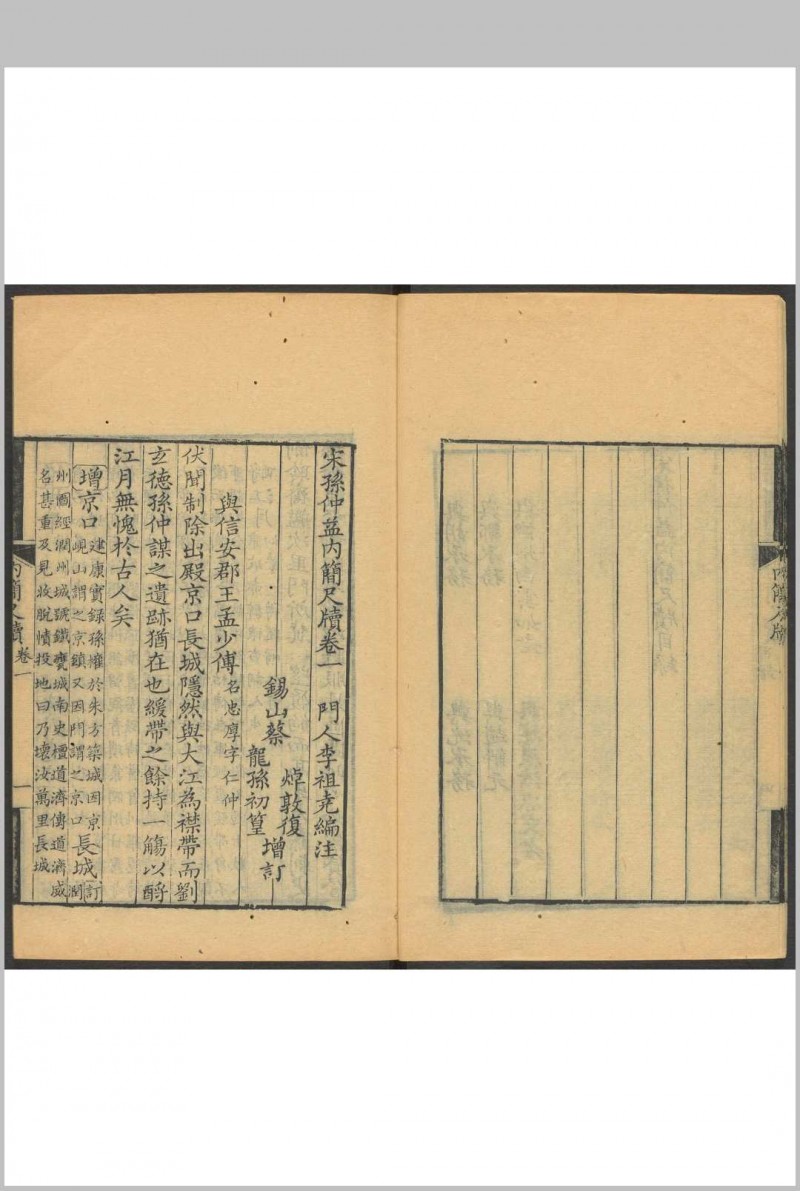 宋孫仲益内簡尺牘卷一 門人李祖堯編注
錫山蔡
焯敦復
龍孫初篁
增訂
與信安郡王孟少傅 名忠厚字仁仲
伏聞制除出殿京口長城隱然與大江為襟帶而劉
玄德孫仲謀之遺跡猶在也緩帶之餘持一觴以酹
江月無愧於古人矣
增京口
建康實録孫權於朱方築城因京
峴山謂之京鎮又因門謂之京口
長城
訂
潤
州圖經潤州城號鐵甕城南史檀道濟傳道濟威
名甚重及見收脫幘投地曰乃壞汝萬里長城
内簡尺牘 卷一 一